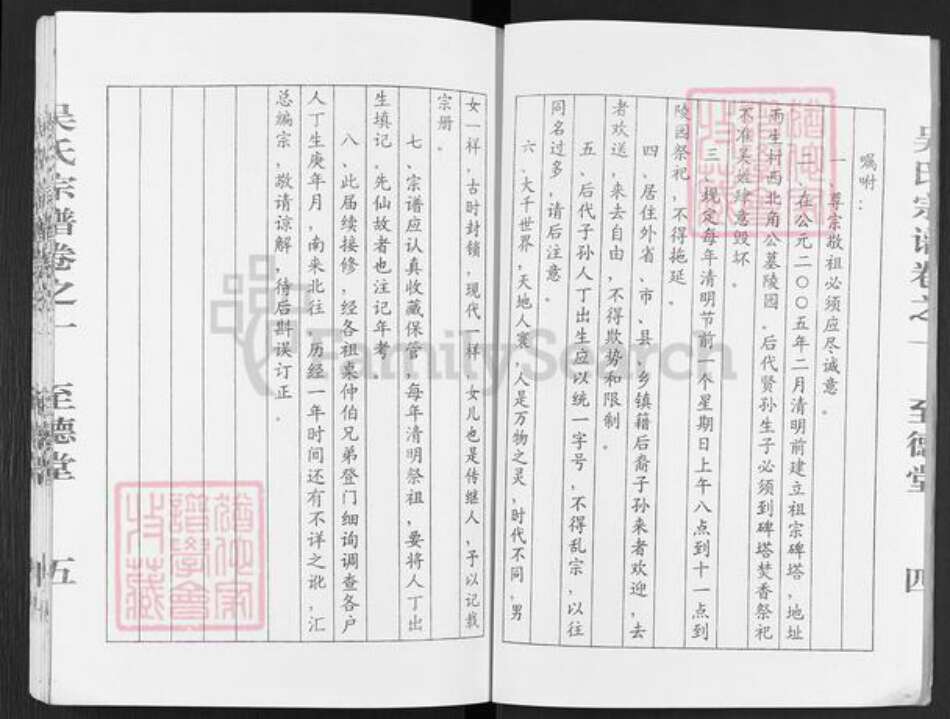 吴氏宗谱卷之一 至德堂 四
嘱咐：
一、尊宗敬祖必须应尽诚意。
二、在公元二〇〇五年二月清明前建立祖宗碑塔，地址
雨生村西北角公墓陵园。后代贤孙生子必须到碑塔焚香祭祀
不准吴姓肆意毁坏。
三、规定每年清明节前一个星期日上午八点到十一点到
陵园祭祀，不得拖延。
四、居住外省、市、县、乡镇籍后裔子孙来者欢迎，去
者欢送，来去自由，不得欺势和限制。
五、后代子孙人丁出生应以统一字号，不得乱宗，以往
同名过多，请后注意。
六、大千世界，天地人寰，人是万物之灵，时代不同，男
女一样，古时封锁，现代一样，女儿也是传继人，予以记载
宗册。
七、宗谱应认真收藏保管，每年清明祭祖，要将人丁出
生填记。先仙故者也注记年考。
八、此届续接修，经各祖束仲伯兄弟登门细询调查各户
人丁生庚年月，南来北往，历经一年时间还有不详之讹，汇
总编宗，敬请谅解，待后斟误订正。
吴氏宗谱卷之一 至德堂 五
FamilySearch